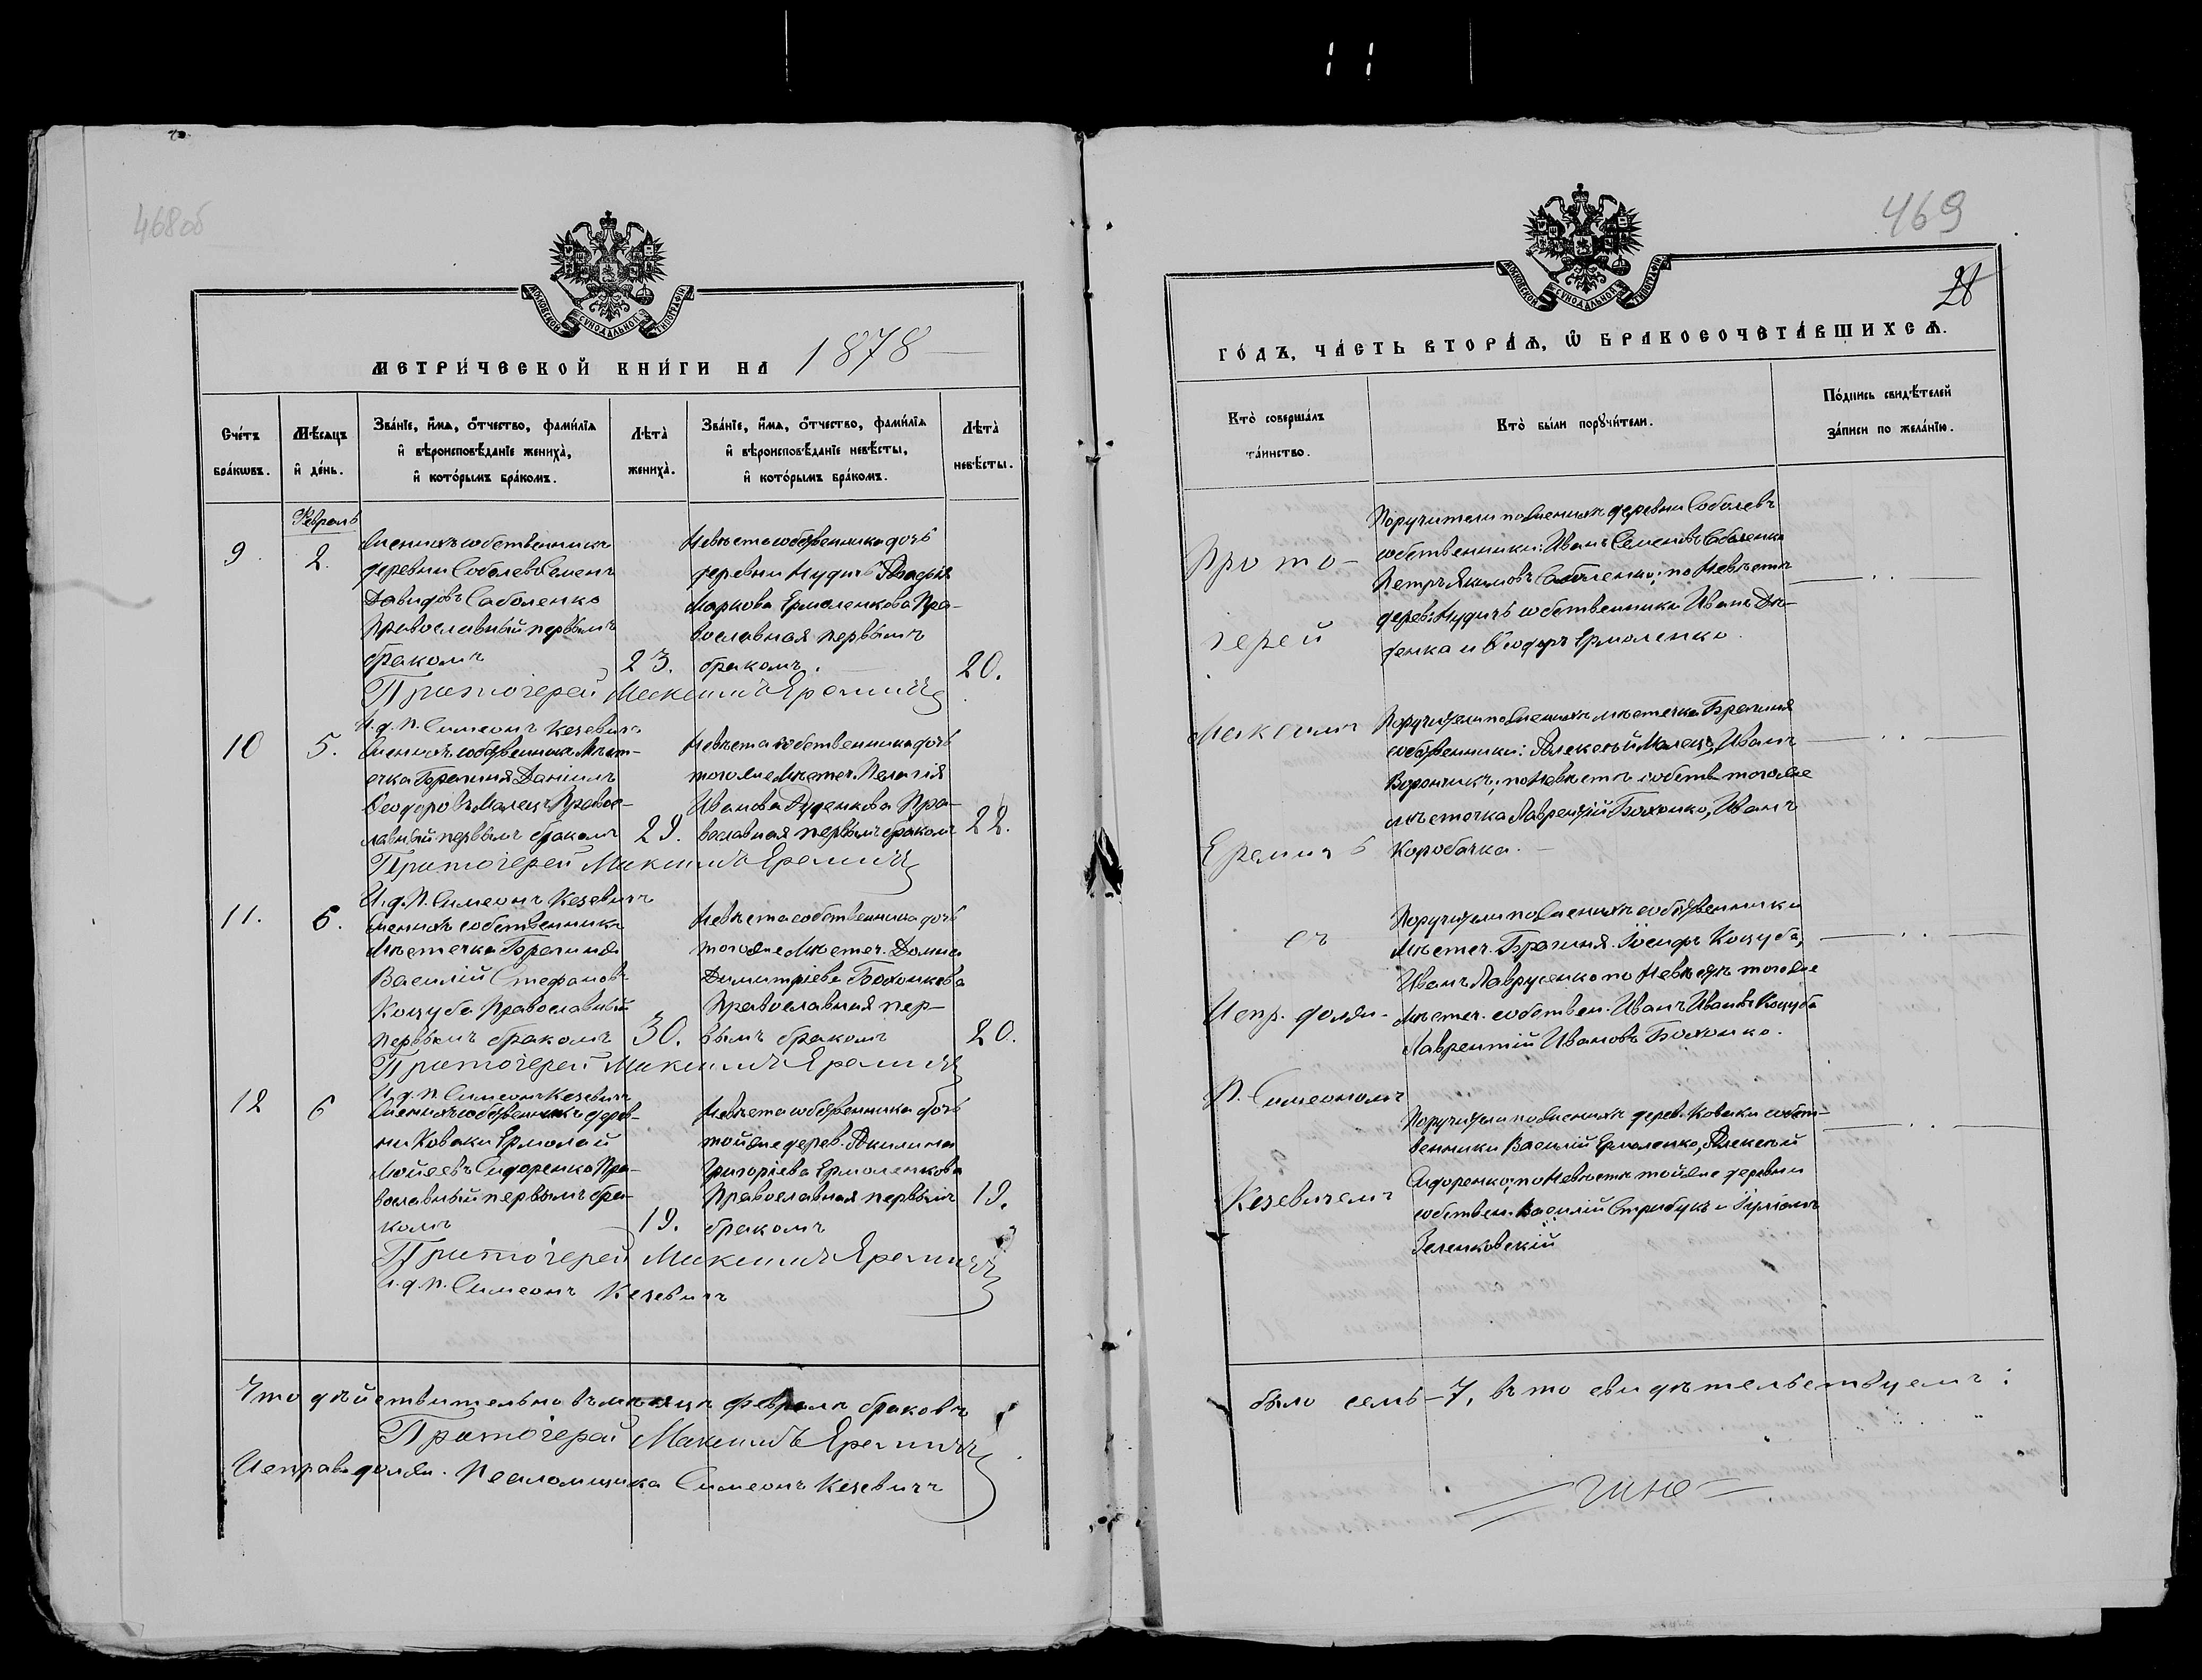 468об
МОСКОВСКОЙ СѴНОДАЛЬНОЙ ТИПОГРАФІИ
МЕТРИ́ЧЕСКОЙ КНИ́ГИ НА 1878
Сче́тъ бра́кѡвъ.
Мѣ́сѧцъ и҆ де́нь.
Зва́нїе, и҆́мѧ, ѻ҆́тчество, фами́лїѧ и҆ вѣроисповѣ́данїе жениха̀, и҆ кото́рымъ бра́комъ.
Лѣ́та жениха̀.
Зва́нїе, и҆́мѧ, ѻ҆́тчество, фами́лїѧ и҆ вѣроисповѣ́данїе невѣ́сты, и҆ кото́рымъ бра́комъ.
Лѣ́та невѣ́сты.
Февраль
9. 2.
Женихъ собственникъ
деревни Соболевъ Семенъ
Давидовъ Соболенко
Православный первымъ
бракомъ
23.
Невѣста собственника дочь
деревни Нудичь
Маркова Ермоленкова Пра-
вославная первымъ
бракомъ.
20.
Протоіерей Максимъ Еремичъ
И. д. П. Симеонъ Кезевичъ
10 5.
Женихъ собственникъ Мѣст-
ечка Брагиня Даніилъ
Ѳеодоровъ Малецъ Правос-
лавный первымъ бракомъ
29.
Невѣста собственника дочь
того же Мѣстеч. Пелагія
Иванова Руденкова Пра-
вославная первымъ бракомъ
22.
Протоіерей Максимъ Еремичъ
И. д. П. Симеонъ Кезевичъ
11. 6.
Женихъ собственникъ
Мѣстечка Брагиня
Василій Стефановъ
Коцуба Православный
первымъ бракомъ
30.
Невѣста собственника дочь
того же Мѣстеч. Домна
Димитріева Бохонкова
Православная пер-
вымъ бракомъ
20.
Протоіерей Максимъ Еремичъ
И. д. П. Симеонъ Кезевичъ
12 6
Женихъ собственникъ дерев-
ни Коваки Ермолай
Мойсеевъ Сидоренко Пра-
вославный первымъ бра-
комъ
19.
Невѣста собственника дочь
той же дерев. Акилина
Григоріева Ермоленкова
Православная первымъ
бракомъ
19.
Протоіерей Максимъ Еремичъ
И. д. П. Симеонъ Кезевичъ
Что дѣйствительно въ мѣсяцѣ февралѣ браковъ
Протоіерей Максимъ Еремичъ
Исправ. долж. Псаломщика Симеонъ Кезевичъ
469
МОСКОВСКОЙ СѴНОДАЛЬНОЙ ТИПОГРАФІИ
ГО́ДЪ, ЧА́СТЬ ВТОРА́Ѧ, Ѡ҆ БРАКОСОЧЕТА́ВШИХСѦ.
Кто̀ соверша́лъ та́инство.
Кто̀ бы́ли порꙋчи́тели.
По́дпись свидѣ́телей за́писи по жела́нїю.
Прото-
іерей
Максимъ
Еремичъ
съ
Испр. долж.
П. Симеономъ
Кезевичемъ
Поручители по Женихѣ деревни Соболевъ
собственники: Иванъ Семеновъ Соболенко
Петръ Якимовъ Соболенко; по Невѣстѣ
дерев. Нудичь собственники Иванъ Ди-
денка и Ѳеодоръ Ермоленко.
Поручители по Женихѣ мѣстечка Брагиня
собственники: Алексѣй Малецъ, Иванъ
Ворончикъ; по Невѣстѣ собств. того же
мѣстечка Лаврентій Бохонко, Иванъ
Коробочка.
Поручители по Женихѣ собственники
Мѣстеч. Брагиня. Іосифъ Коцуба,
Иванъ Лаврусенко по Невѣстѣ того же
Мѣстеч. собствен. Иванъ Ивановъ Коцуба
Лаврентій Ивановъ Бохонко.
Поручители по Женихѣ дерев. Коваки собст-
венники Василій Ермоленко, Алексѣй
Сидоренко; по Невѣстѣ той же деревни
собствен. Василій Стрибукъ и
Зеленковскій
было семь - 7, въ томъ свидѣтельствуемъ: